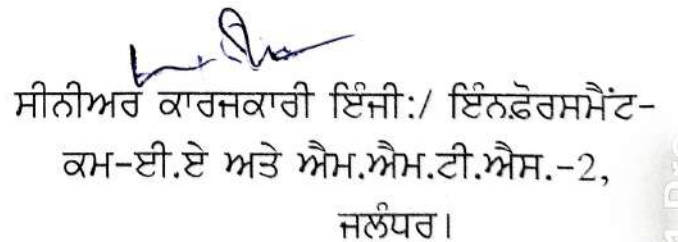 ਸੀਨੀਅਰ ਕਾਰਜਕਾਰੀ ਇੰਜੀ:/ ਇੰਨਫ਼ੋਰਸਮੈਂਟ-
ਕਮ-ਈ.ਏ ਅਤੇ ਐਮ.ਐਮ.ਟੀ.ਐਸ.-2,
ਜਲੰਧਰ।